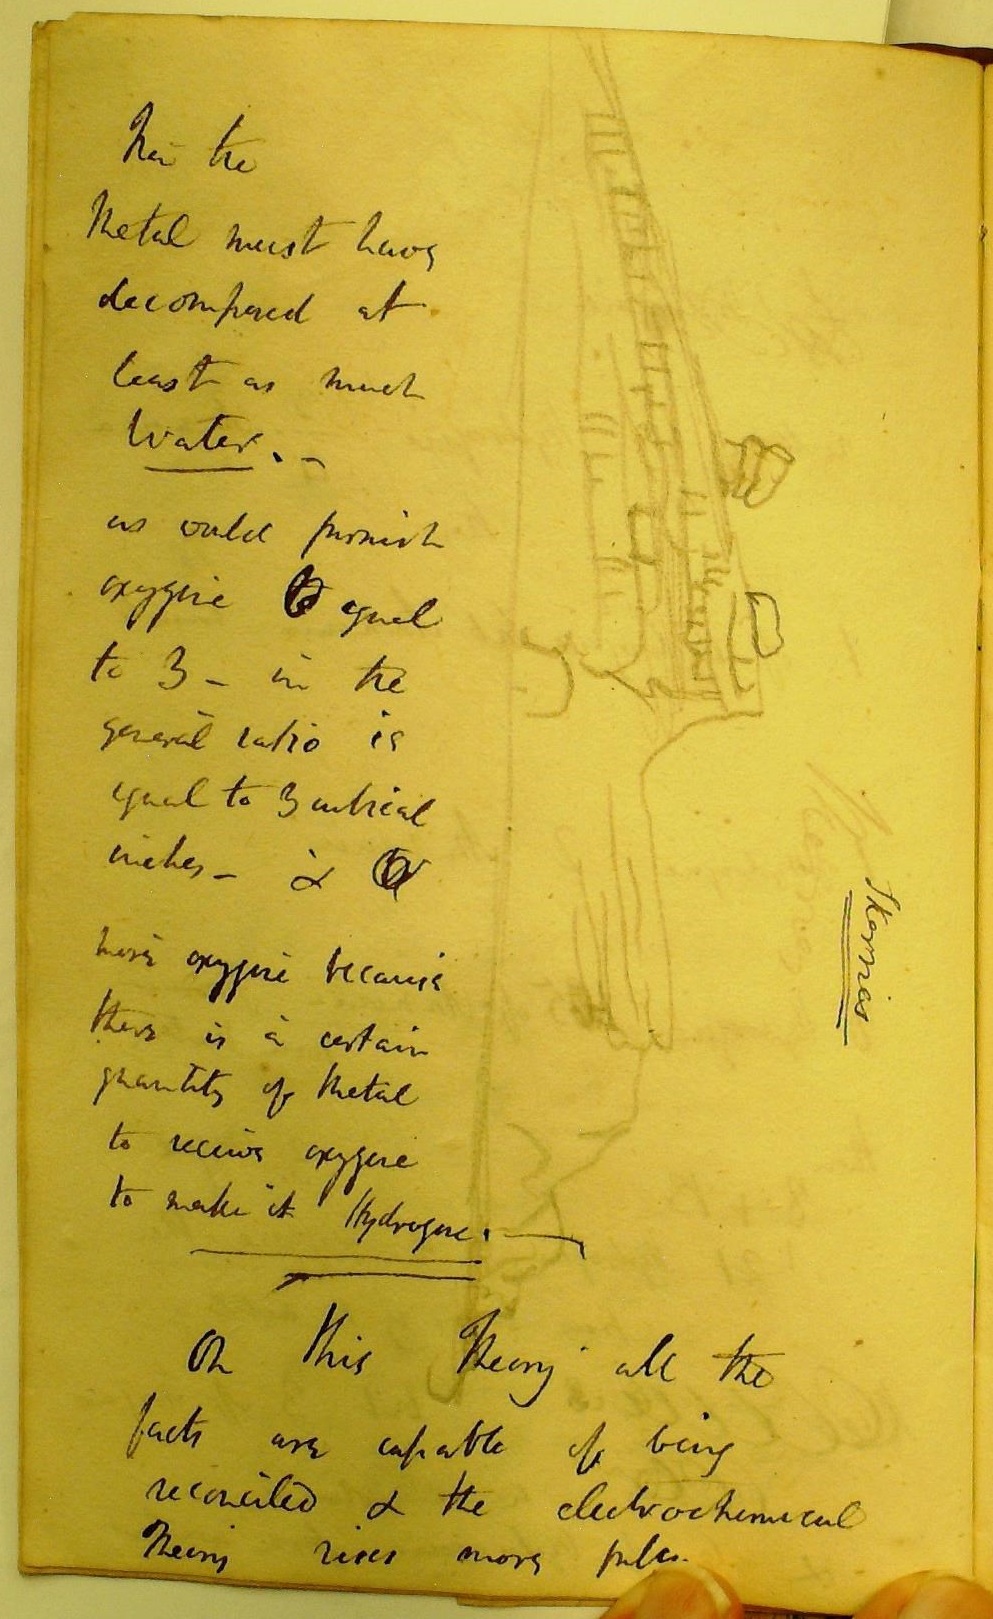 Now the
Metal must have
decomposed at
least as much
Water. -
as would furnish
oxygene equal
to 3 - in the
general ratio is
equal to 3 cubical
inches - &
more oxygene because
there is a certain
quantity of Metal
to receive oxygene
to make it Hydrogene. —
On this Theory all the
facts are capable of being
reconciled & the electrochemical
Theory rises more